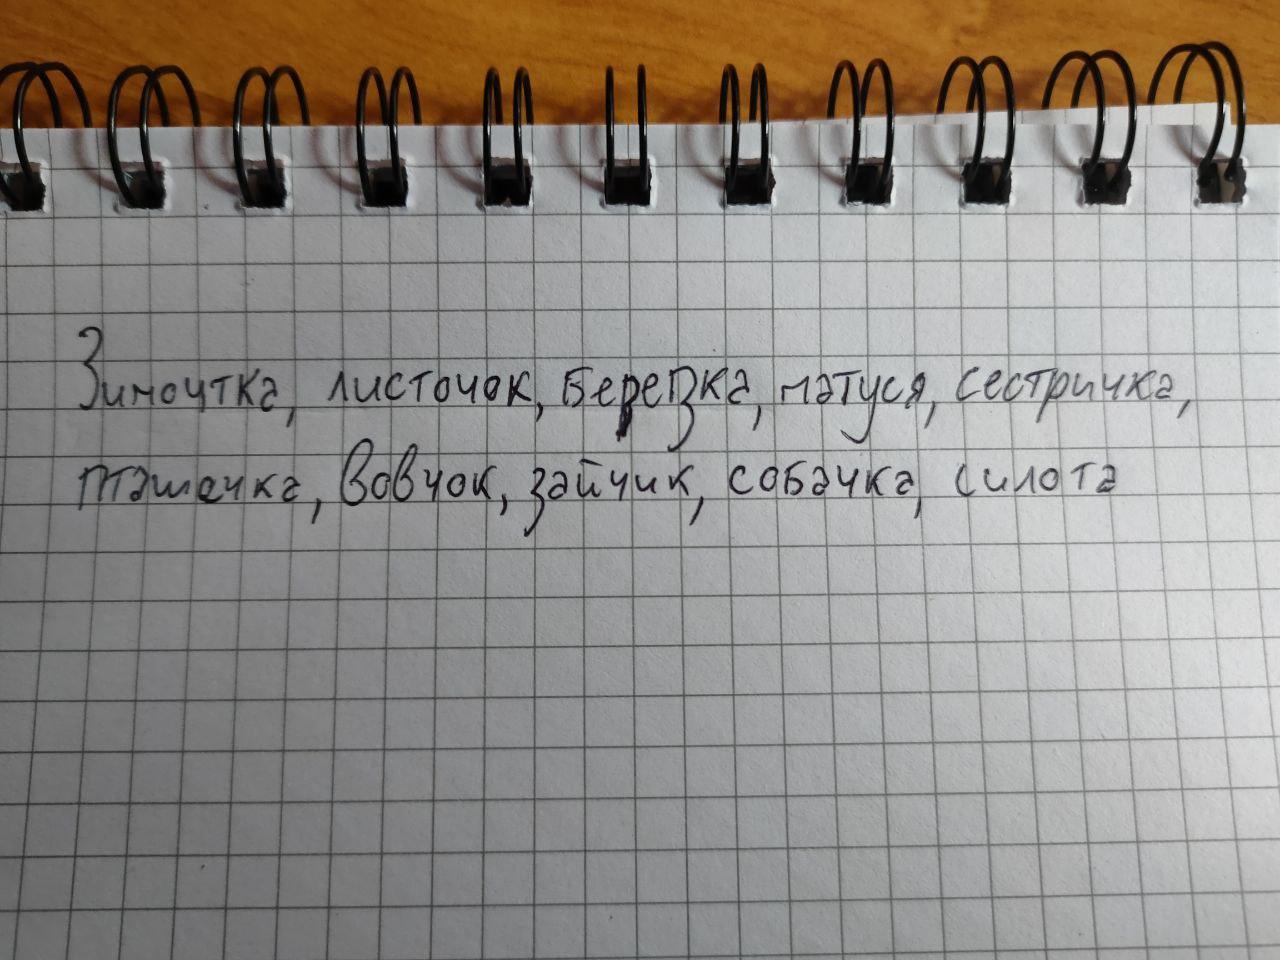 Зимоутка, листочок, березка, матуся, сестричка,
пташечка, вовчок, зайчик, собачка, силота